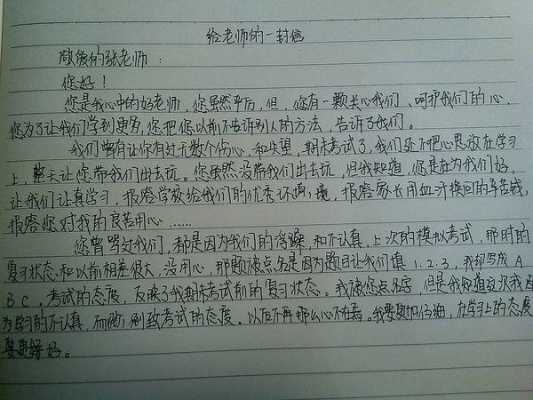 给老师的一封信
敬爱的张老师：
您好！
您是我心中的好老师，您虽然平凡，但，您有一颗关心我们、呵护我们的心，
您为了让我们学到更多，您把您以前不告诉别人的方法，告诉了我们。
我们曾有让你有过无数个伤心，和失望，期末考试了，我们还不把心思放在学习
上，整天让您带我们出去玩。您虽然没带我们出去玩，但我知道，您是在为我们好，
让我们认真学习，报答学校给我们的优秀环境，报答家长用血汗换回的辛苦钱，
报答您对我的良苦用心……
您曾骂过我们，都是因为我们的，和不认真，上次的模拟考试，那时的
复习状态，和以前相差很大，没用心，那题被点名是因为题目让我们填1.2.3，我却写成A
B C，考试的态度，反映了我期末考试前的复习状态。我被您点名字，但是我知道这次我因
为学习的不认真，而导致考试的态度。以后不再那么心不在焉。我要更加仔细，在学习上的态度
要更好。